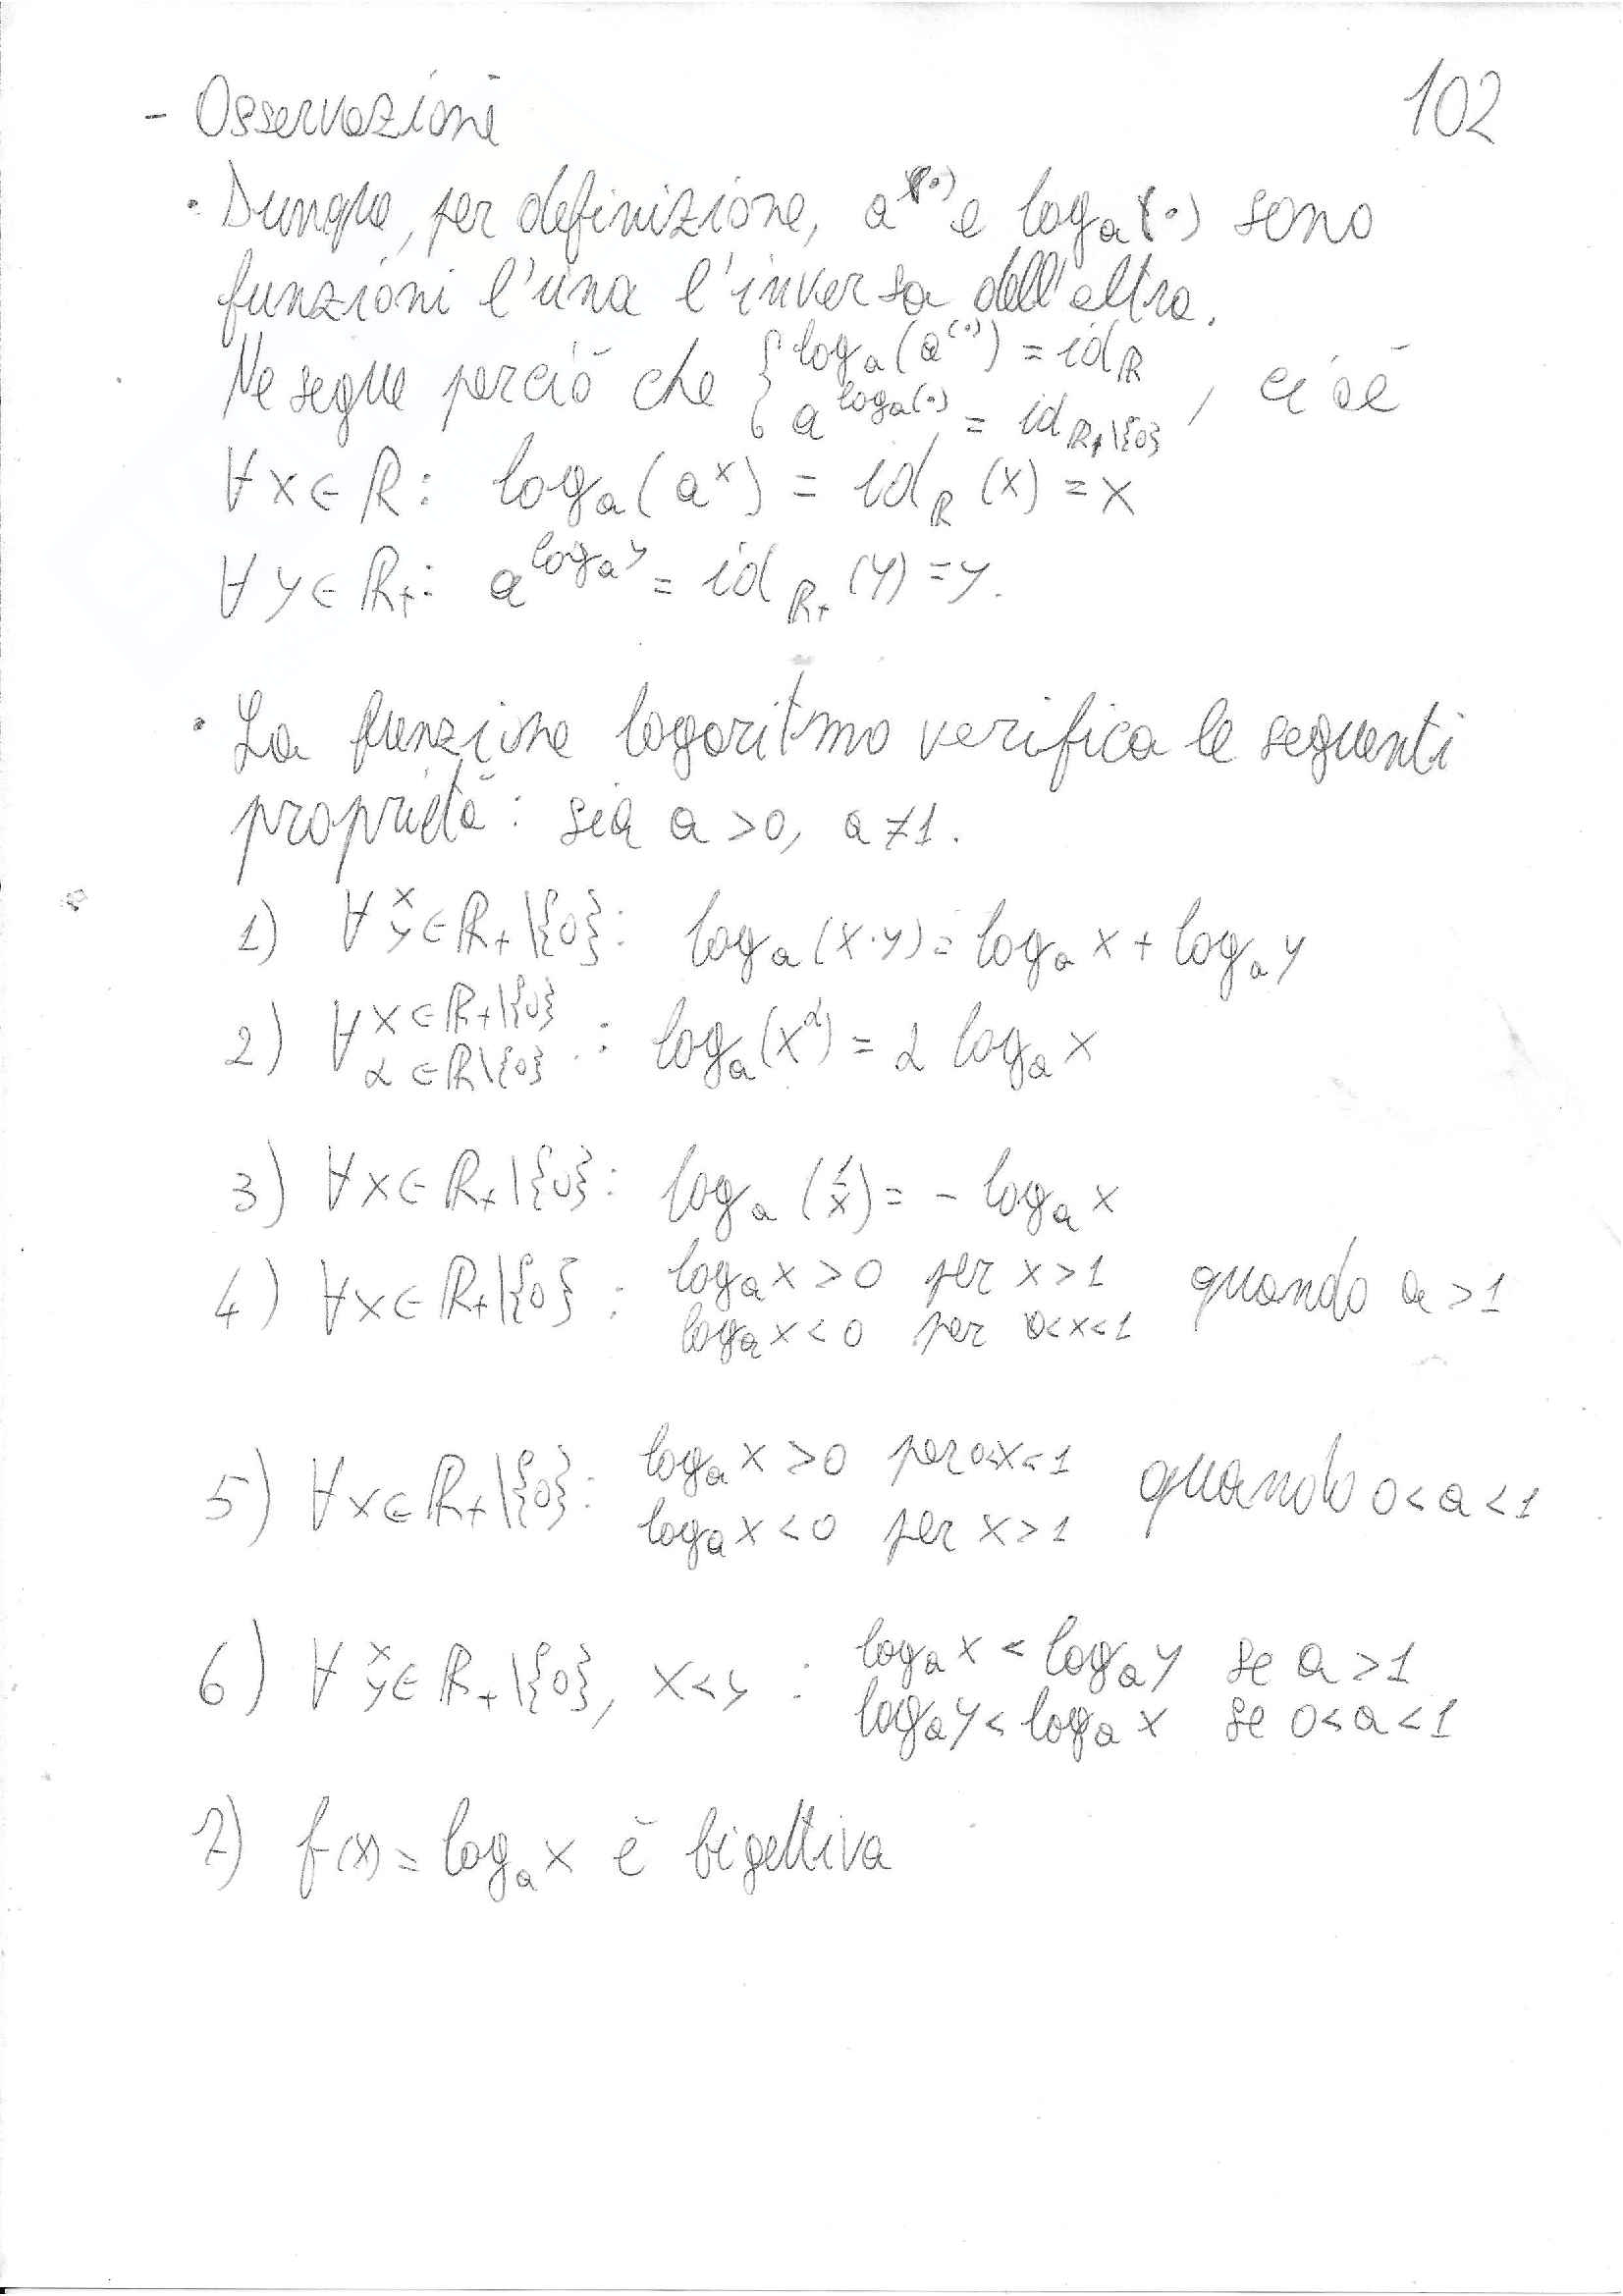 102
- Osservazioni
• Dunque, per definizione, a^(•) e log_a(•) sono
funzioni l'una l'inversa dell'altra.
Ne segue perciò che { log_a(a^(•)) = id_ℝ
a^(log_a(•)) = id_(ℝ₊\{0}) , cioè
∀x∈ℝ: log_a(a^x) = id_ℝ(x) = x
∀y∈ℝ₊: a^(log_a y) = id_(ℝ₊)(y) = y.
• La funzione logaritmo verifica le seguenti
proprietà: sia a>0, a≠1.
1) ∀x y∈ℝ₊\{0}: log_a(x·y) = log_a x + log_a y
2) ∀x∈ℝ₊\{0} α∈ℝ\{0} : log_a(x^α) = α log_a x
3) ∀x∈ℝ₊\{0}: log_a(1/x) = - log_a x
4) ∀x∈ℝ₊\{0} : log_a x > 0 per x>1 quando a>1
log_a x < 0 per 0<x<1
5) ∀x∈ℝ₊\{0}: log_a x > 0 per 0<x<1 quando 0<a<1
log_a x < 0 per x>1
6) ∀x y∈ℝ₊\{0}, x<y : log_a x < log_a y se a>1
log_a y < log_a x se 0<a<1
7) f(x) = log_a x è bigettiva